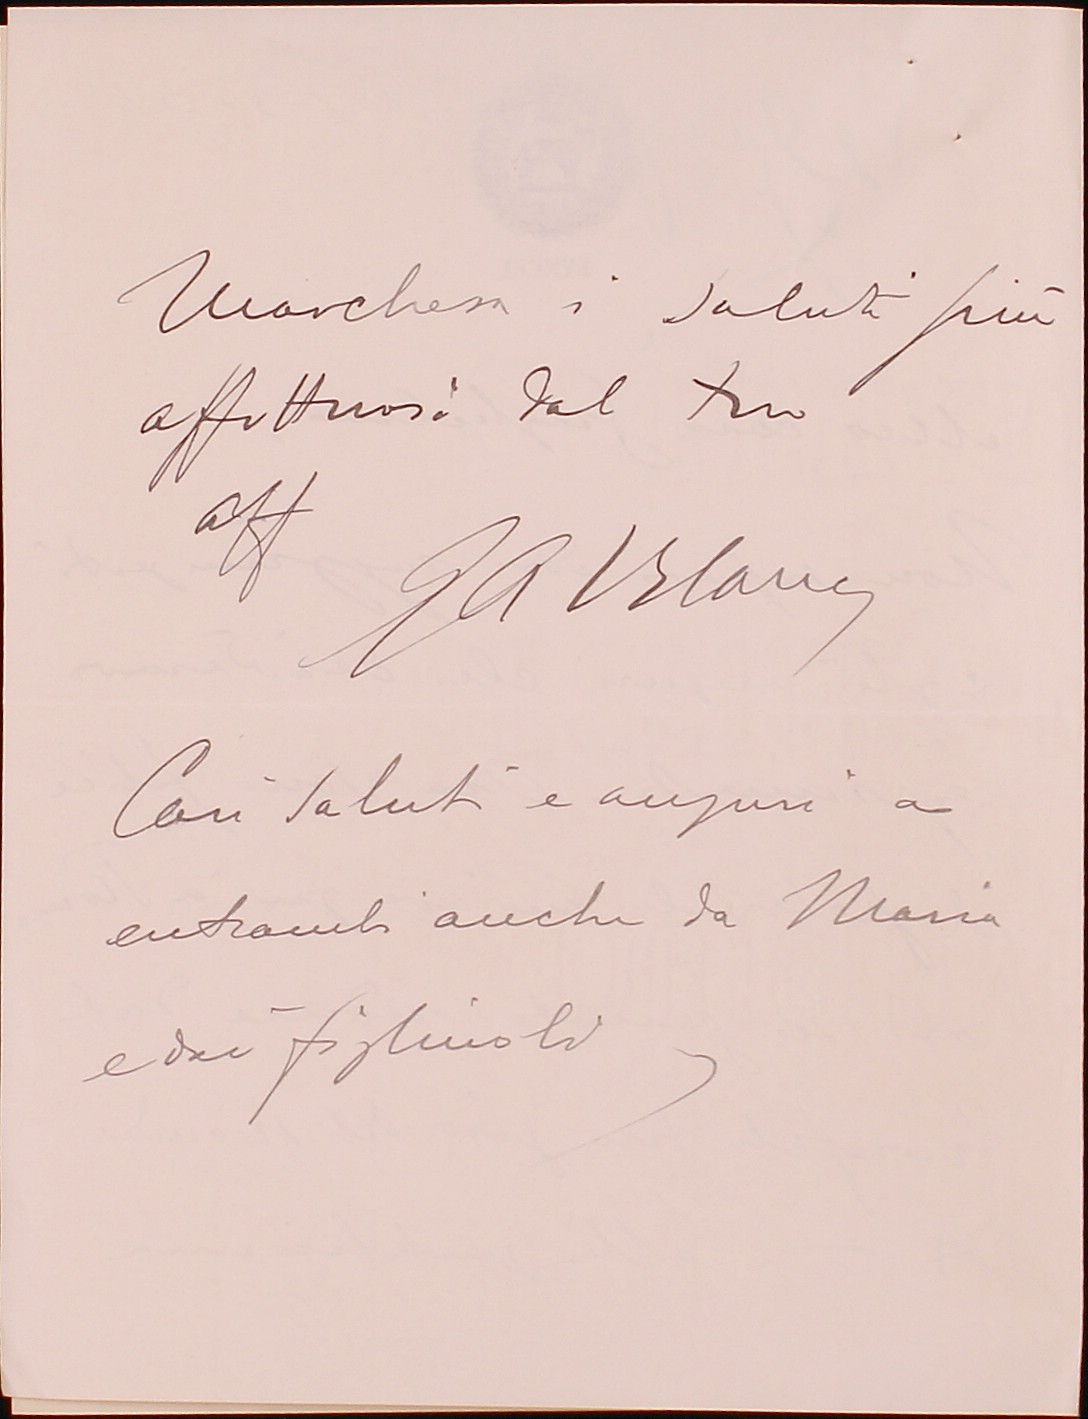 Marchesa i saluti più
affettuosi dal tuo
aff
GA Blanc
Cari saluti e auguri a
entrambi anche da Maria
e dai figliuoli